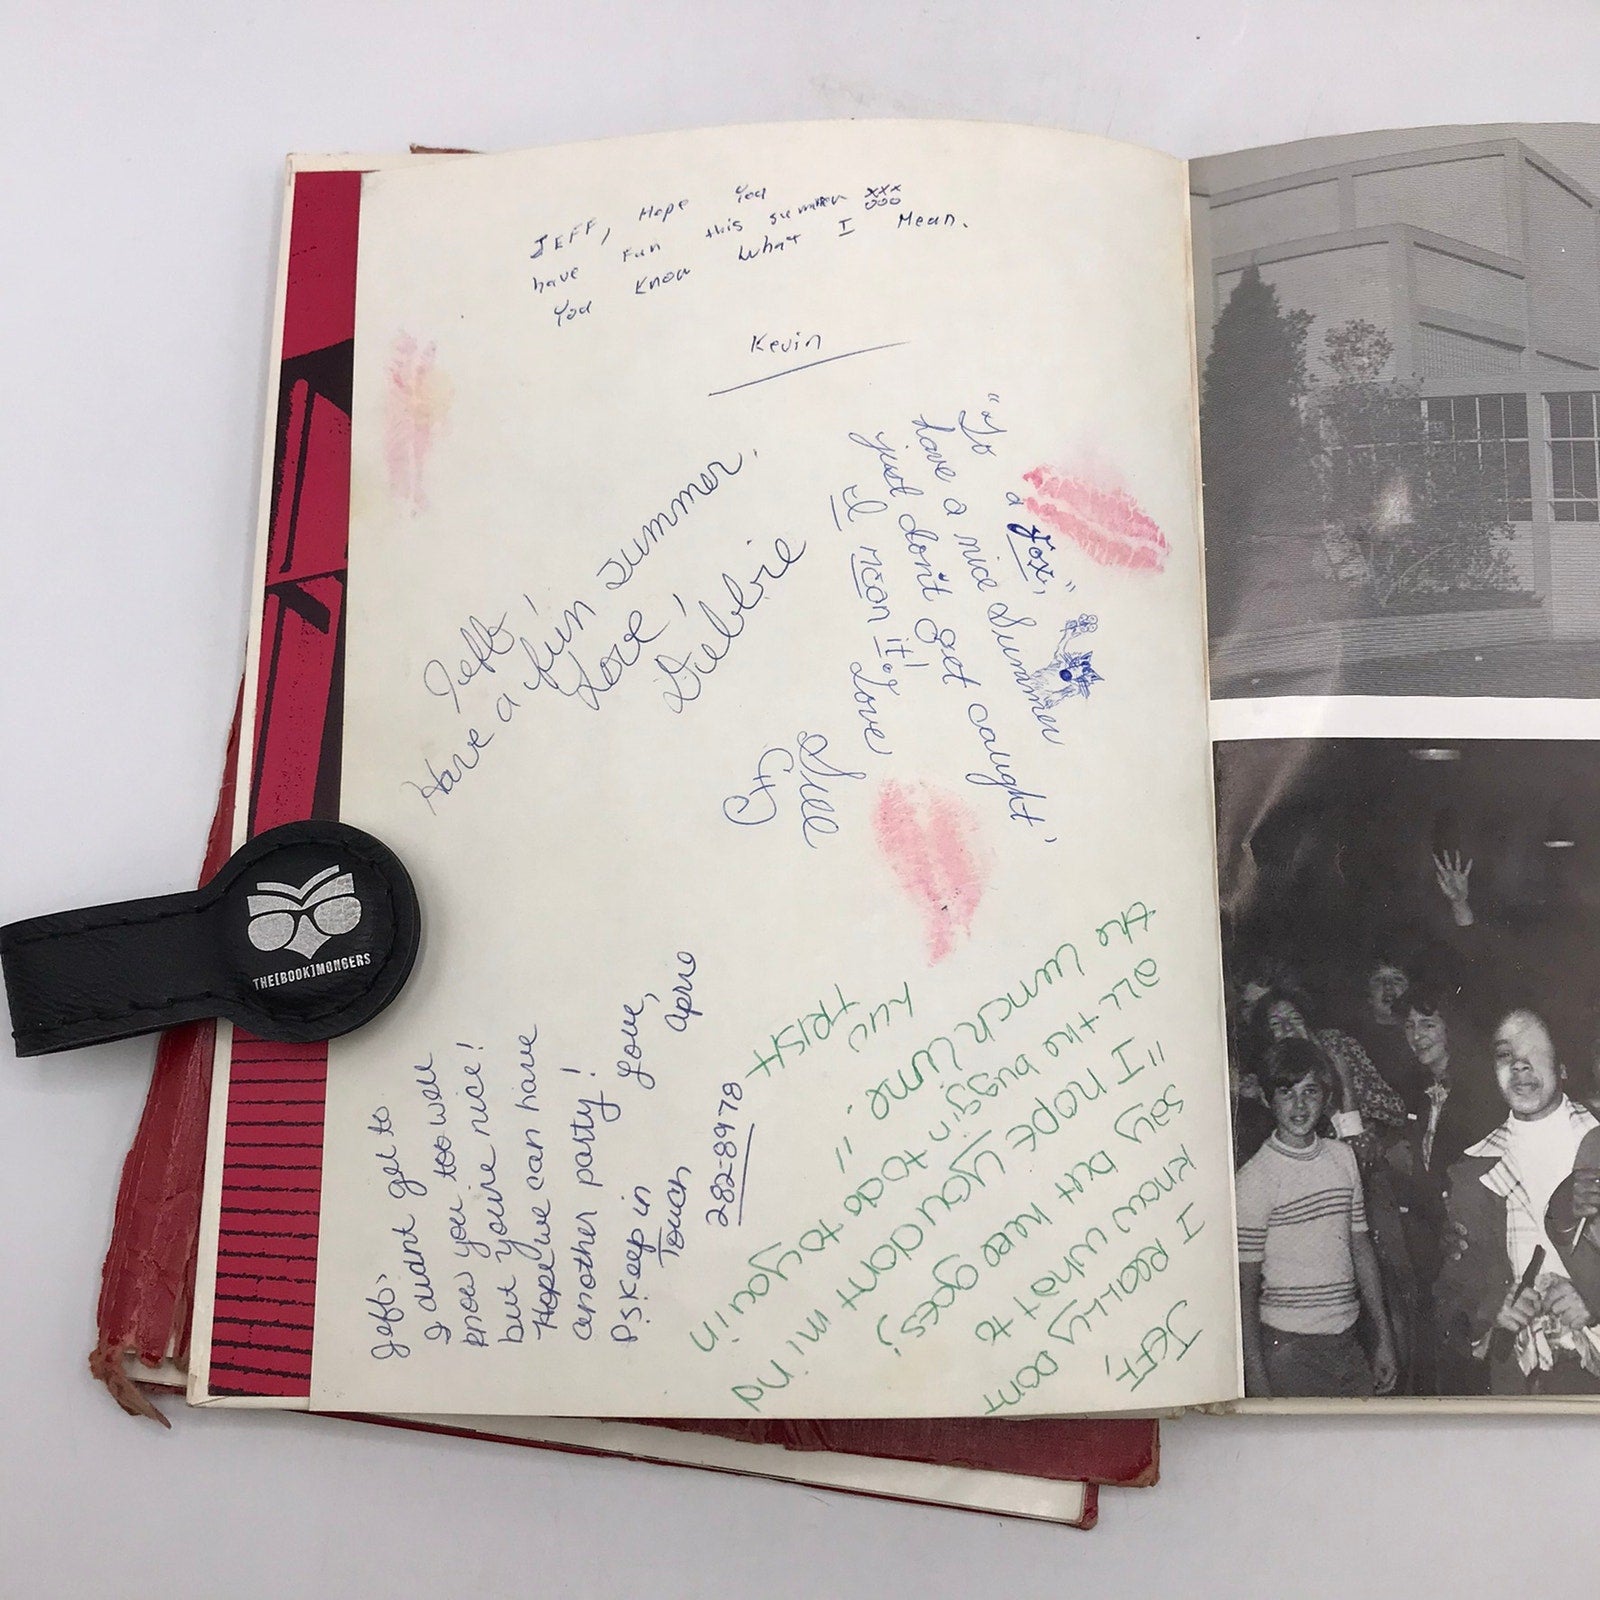 JEFF, Hope You
have Fun this summer xxx ooo
You know what I Mean.
Kevin
"To a Fox,"
have a nice Summer
just don't get caught'
I mean it! Love
Jill
Jeff,
Have a fun Summer.
Love,
Debbie
THE[BOOK]MONGERS
Jeff,
I didnt get to
know you too well
but you're nice!
Hope we can have
another party!
P.S. Keep in Love,
Touch April
282-8978
JEFF,
I REALLY DONT
KNOW WHAT TO
SAY BUT HERE GOES;
"I HOPE YOU DONT MIND
ALL THE BUGGIN TO DO TO YOU IN
THE LUNCH LINE."
LUV
TRISH